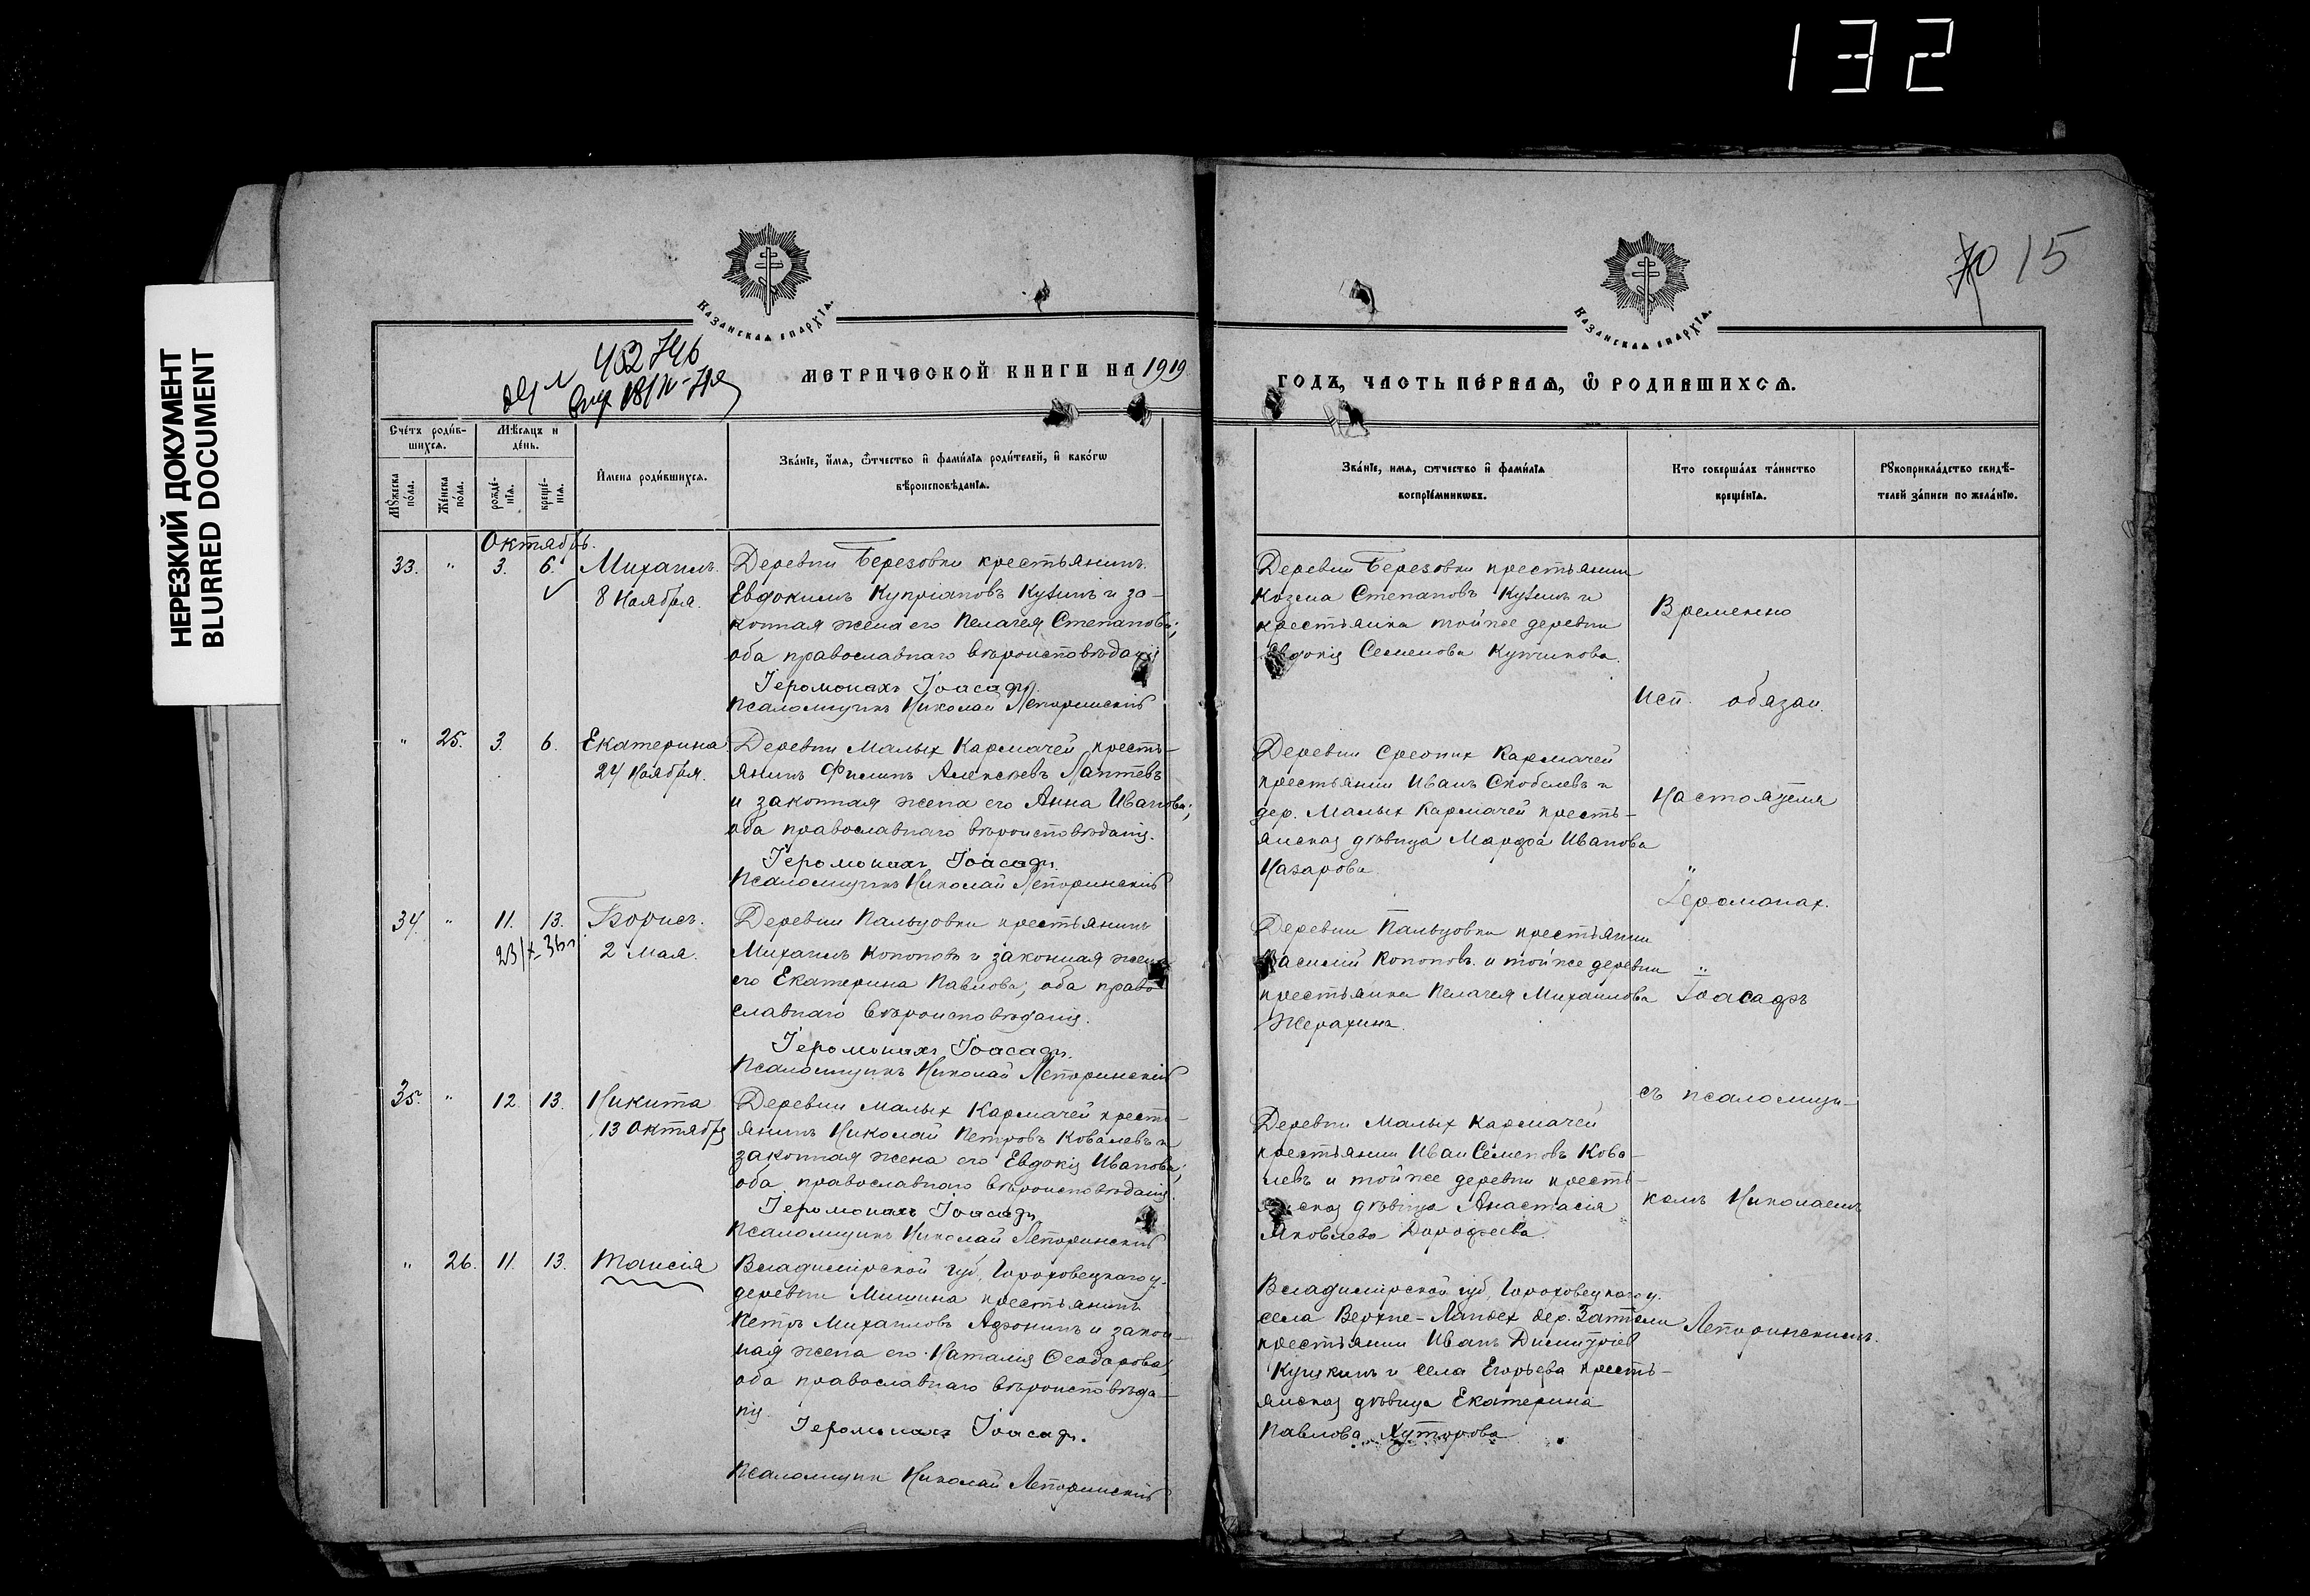 132
НЕРЕЗКИЙ ДОКУМЕНТ
BLURRED DOCUMENT
15
Казанская епархія.
Казанская епархія.
452746
МЕТРИЧЕСКОЙ КНИГИ НА 1919
ГОДЪ, ЧАСТЬ ПЕРВАЯ, Ѿ РОДИВШИХСЯ.
Счетъ родив-
шихся.
Мѣсяцъ и
день.
Мꙋжеска
пола.
Женска
пола.
рожде-
нія.
креще-
нія.
Имена родившихся.
Званіе, имя, ѿтчество и фамилія родителей, и какогѡ
вѣроисповѣданія.
Званіе, имя, ѿтчество и фамилія
воспріемникѡвъ.
Кто совершалъ таинство
крещенія.
Рꙋкоприкладство свидѣ-
телей записи по желанію.
Октябрь.
33. " 3. 6. Михаилъ.
8 Ноября.
Деревни Березовки крестьянинъ
Евдокимъ Купріановъ Кузинъ и за-
конная жена его Пелагея Степанова;
оба православнаго вѣроисповѣданія
Іеромонахъ Іоасафъ.
Псаломщикъ Николай Лепоринскій
Деревни Березовки крестьянин
Козма Степановъ Кузинъ и
крестьянка той же деревни
Евдокія Семенова
Временно
Исп. обязан.
" 25. 3. 6. Екатерина
24 Ноября.
Деревни Малых Кармачей кресть-
янинъ Филипъ Алексѣевъ Лаптевъ
и законная жена его Анна Иванова;
оба православнаго вѣроисповѣданія.
Іеромонахъ Іоасафъ
Псаломщикъ Николай Лепоринскій
Деревни Средних Кармачей
крестьянин Иванъ Скобелевъ и
дер. Малых Кармачей кресть-
янская дѣвица Марфа Иванова
Назарова.
Настоятеля
Іеромонах.
34. " 11. 13. Борисъ.
23/X-36г.
2 Мая.
Деревни Пальцовки крестьянинъ
Михаилъ Кононовъ и законная жена
его Екатерина Павлова; оба право-
славнаго вѣроисповѣданія.
Іеромонахъ Іоасафъ.
Псаломщикъ Николай Лепоринскій
Деревни Пальцовки крестьянин
Василій Кононовъ и той же деревни
крестьянка Пелагея Михаилова
Іоасафъ
35. " 12. 13. Никита
13 Октября
Деревни Малых Кармачей кресть-
янинъ Николай Петровъ Ковалевъ и
законная жена его Евдокія Иванова;
оба православнаго вѣроисповѣданія.
Іеромонахъ Іоасафъ
Псаломщикъ Николай Лепоринскій
съ псаломщи-
Деревни Малых Кармачей
крестьянин Иван Семеновъ Кова-
левъ и той же деревни кресть-
янская дѣвица Анастасія
Яковлева Дорофеева.
комъ Николаемъ
" 26. 11. 13. Таисія
Владимірской губ, Гороховецкаго у.
деревни Мишина крестьянинъ
Петръ Михаиловъ Афонинъ и закон-
ная жена его Наталія Ѳеодорова,
оба православнаго вѣроисповѣда-
нія.
Іеромонахъ Іоасафъ.
Псаломщик Николай Лепоринскій
Владимірской губ, Гороховецкаго у.
села Верхне-Ландех дер.
крестьянин Иванъ Димитріев
и села Егорьева кресть-
янская дѣвица Екатерина
Павлова Хуторова
Лепоринскимъ.